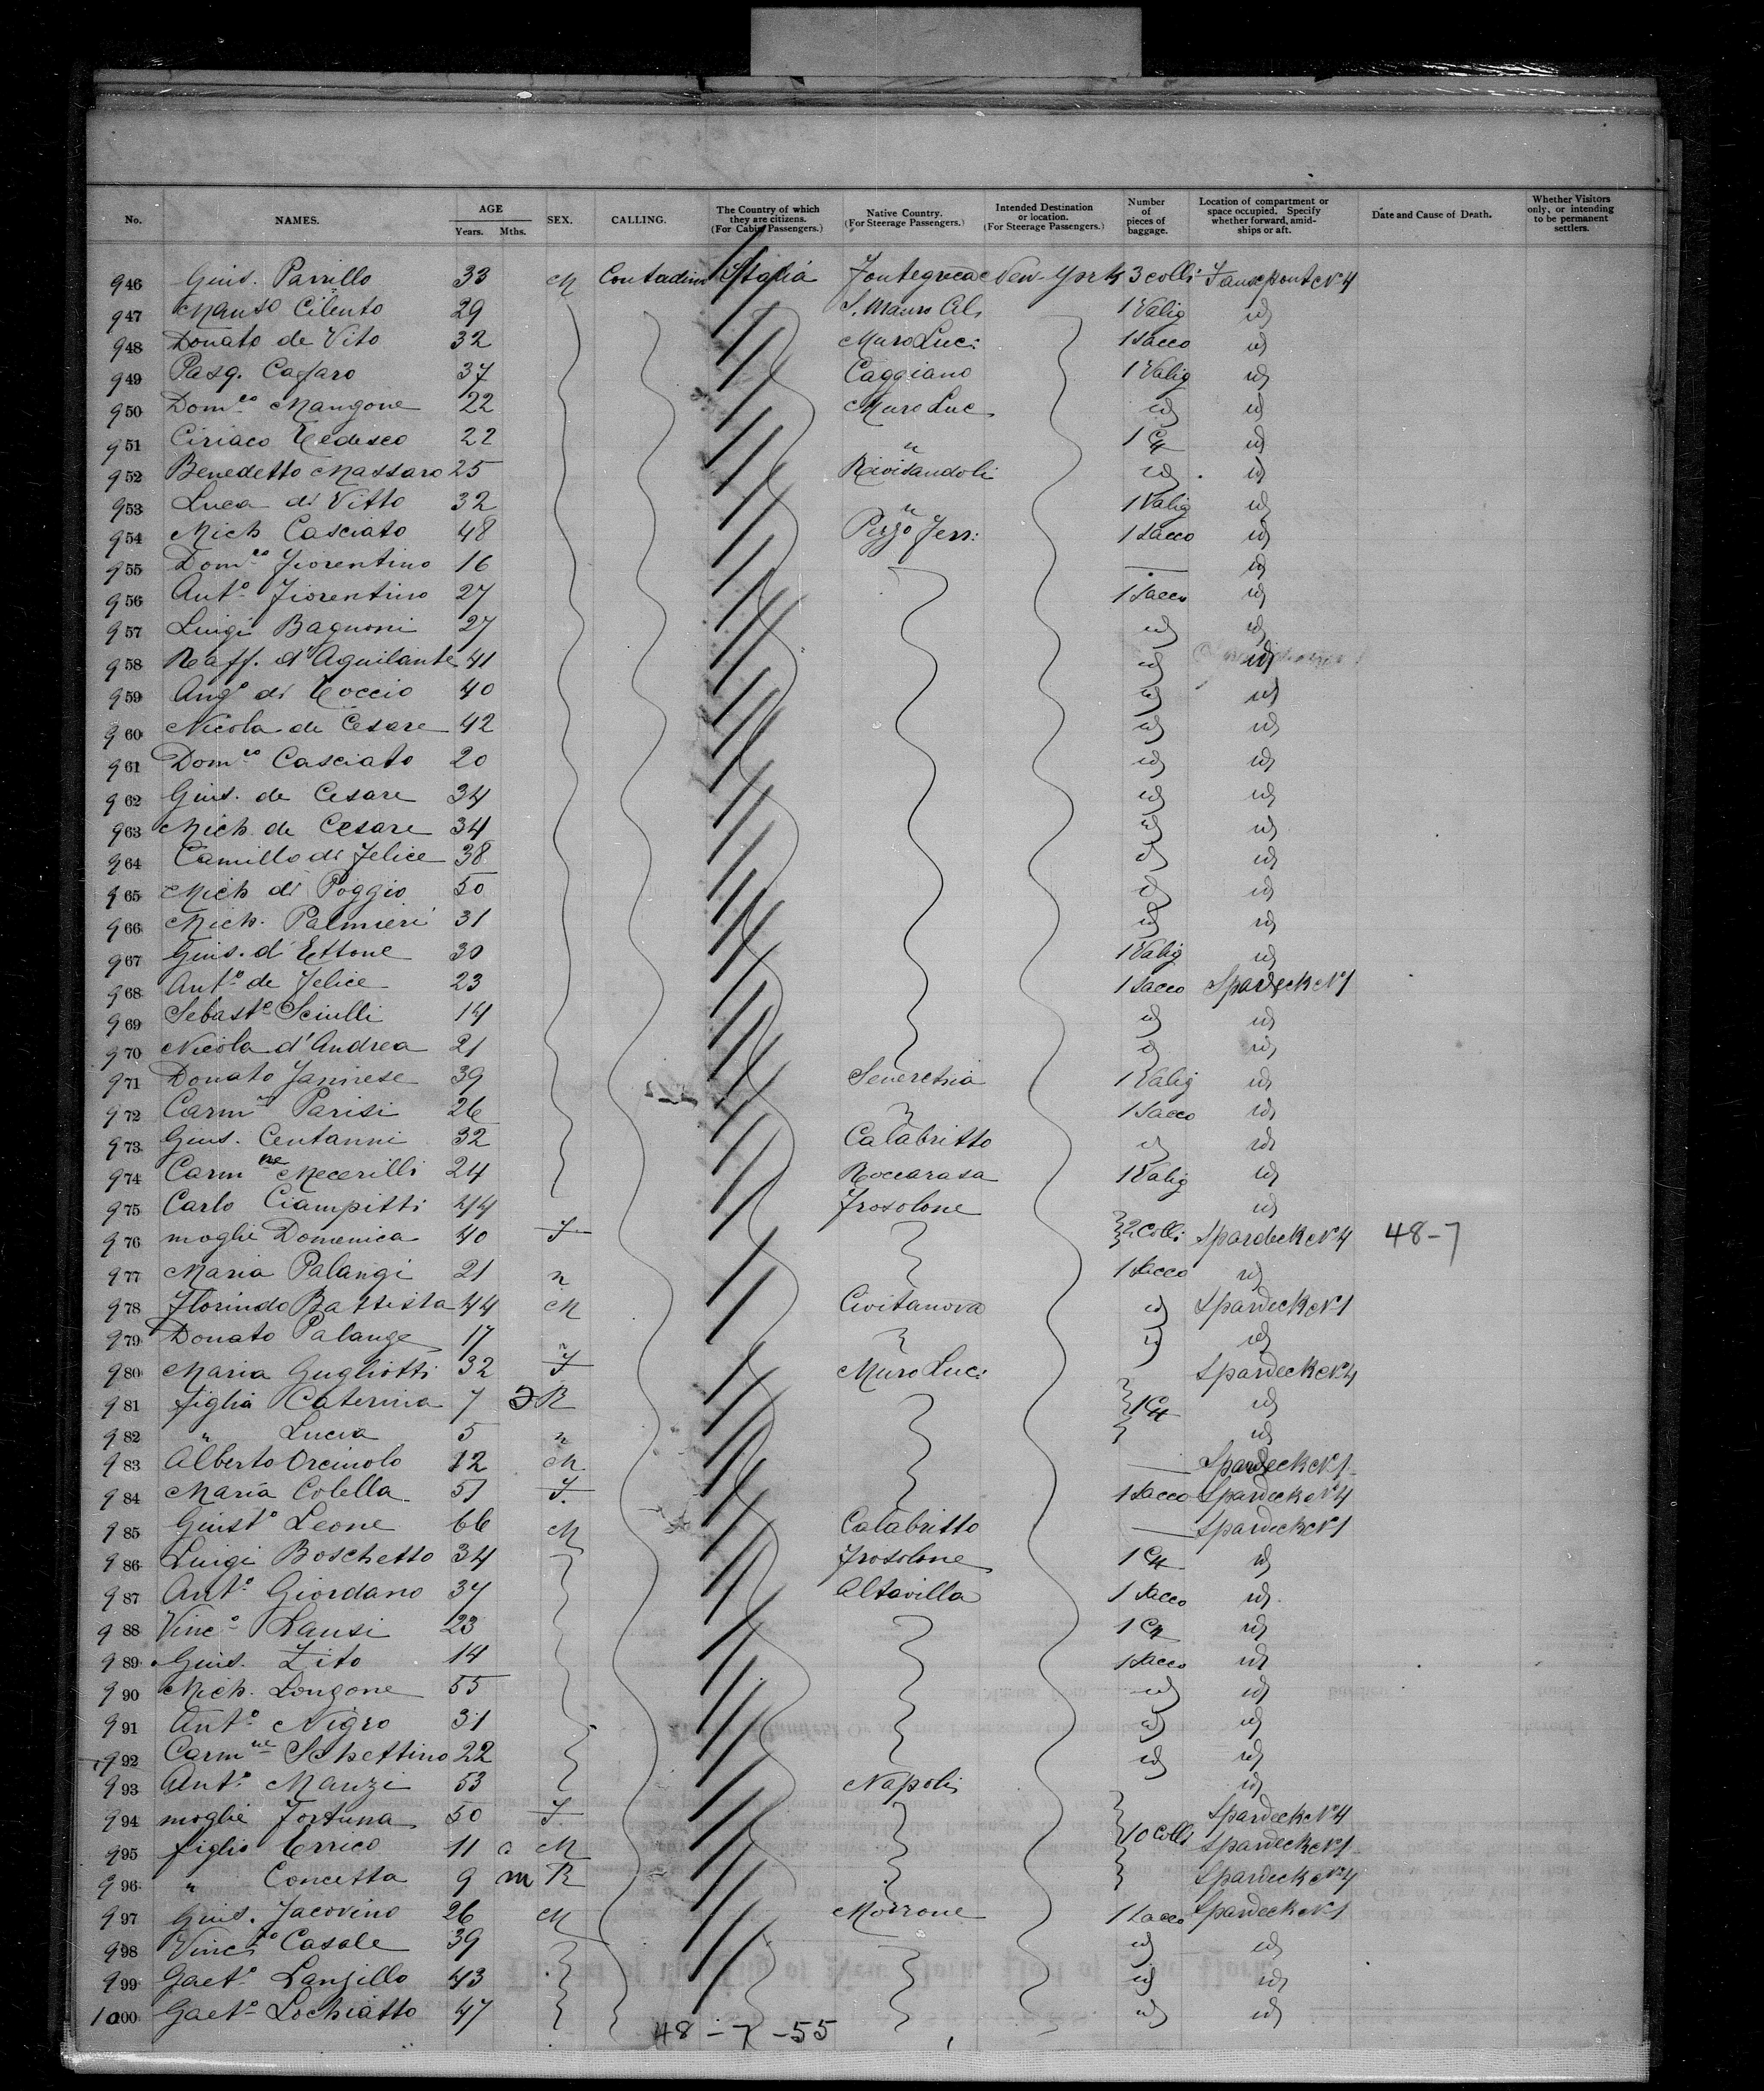 No. NAMES. AGE Years. Mths. SEX. CALLING. The Country of which they are citizens. (For Cabin Passengers.) Native Country. (For Steerage Passengers.) Intended Destination or location. (For Steerage Passengers.) Number of pieces of baggage. Location of compartment or space occupied. Specify whether forward, amidships or aft. Date and Cause of Death. Whether Visitors only, or intending to be permanent settlers.
946 Gius. Parrillo 33 M Contadino Italia New-York 3 colli
947 Cilento 29 S. Mauro Cil. 1 Valig id
948 Donato de Vito 32 Muro Luc: 1 Sacco id
949 Pasq. Cafaro 37 Caggiano 1 Valig id
950 Dom.co Mangone 22 Muro Luc id id
951 Ciriaco Tedesco 22 " 1 id
952 Benedetto Massaro 25 id id
953 Luca di Vitto 32 " 1 Valig id
954 Mich Casciato 48 Pizzo Ferr: 1 Sacco id
955 Dom.co Fiorentino 16 — id
956 Ant.o Fiorentino 27 1 Sacco id
957 Luigi Bagnoni 27 id id
958 Raff. d'Aquilante 41 id id
959 Ang.o di Toccio 40 id id
960 Nicola de Cesare 42 id id
961 Dom.co Casciato 20 id id
962 Gius. de Cesare 34 id id
963 Mich. de Cesare 34 id id
964 Camillo di Felice 38 id id
965 Mich di Poggio 50 id id
966 Mich. Palmieri 31 id id
967 Gius. d'Ettone 30 1 Valig id
968 Ant.o de Felice 23 1 Sacco Spardeck N 1
969 Sebast.o Sciulli 14 id id
970 Nicola d'Andrea 21 id id
971 Donato 39 Senerchia 1 Valig id
972 Carm.e Parisi 26 1 Sacco id
973 Gius. Centanni 32 Calabritto id id
974 Carm.ne Mecerilli 24 Roccarasa 1 Valig id
975 Carlo Ciampitti 44 Frosolone id
976 moglie Domenica 40 F 2 Colli Spardeck N 4 48-7
977 Maria Palangi 21 " 1 Sacco id
978 Florindo Battista 44 M Civitanova id Spardeck N 1
979 Donato Palange 17 " id id
980 Maria Gugliotti 32 F Muro Luc: Spardeck N 4
981 figlia Caterina 7 R 1 id
982 " Lucia 5 " id
983 Alberto Orcinolo 12 M — Spardeck N 1
984 Maria Colella 51 F. 1 Sacco Spardeck N 4
985 Giust.o Leone 66 M Calabritto — Spardeck N 1
986 Luigi Boschetto 34 Frosolone 1 id
987 Ant.o Giordano 37 Altavilla 1 Sacco id
988 Vinc.o Lausi 23 1 id
989 Gius. Zito 14 1 Sacco id
990 Mich. Longone 55 id id
991 Ant.o Nigro 31 id id
992 Carm.ne Schettino 22 id id
993 Ant.o Manzi 53 Napoli id
994 moglie Fortuna 50 F. Spardeck N 4
995 figlio Errico 11 M 10 Colli Spardeck N 1
996 " Concetta 9 m R Spardeck N 4
997 Gius. Jacovino 26 M Morrone 1 Sacco Spardeck N 1
998 Casale 39 id id
999 Gaet.o Lanzillo 43 id id
1000 Gaet.o Lochiatto 47 id id
48-7-55